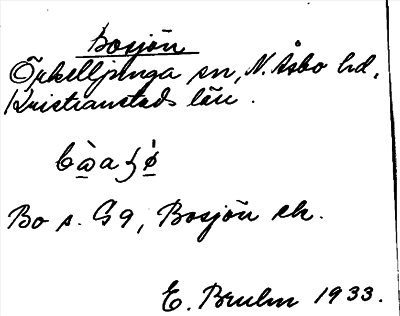 Bosjön
Örkelljunga sn, N. Åsbo hd,
Kristianstads län.
Bo s. G9, Bosjön ek.
E. Bruhn 1933.